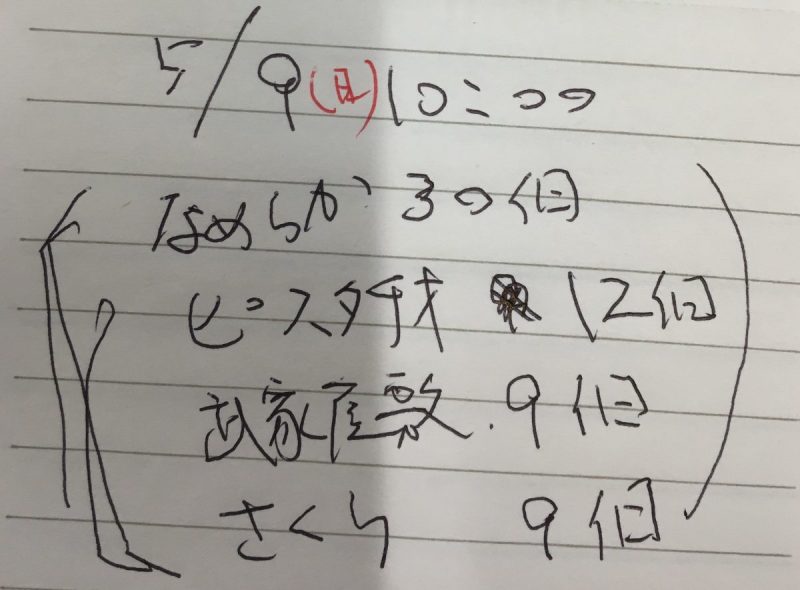 5/9(日)10:00
なめらか 30個
ピスタチオ 12個
武家屋敷 9個
さくら 9個